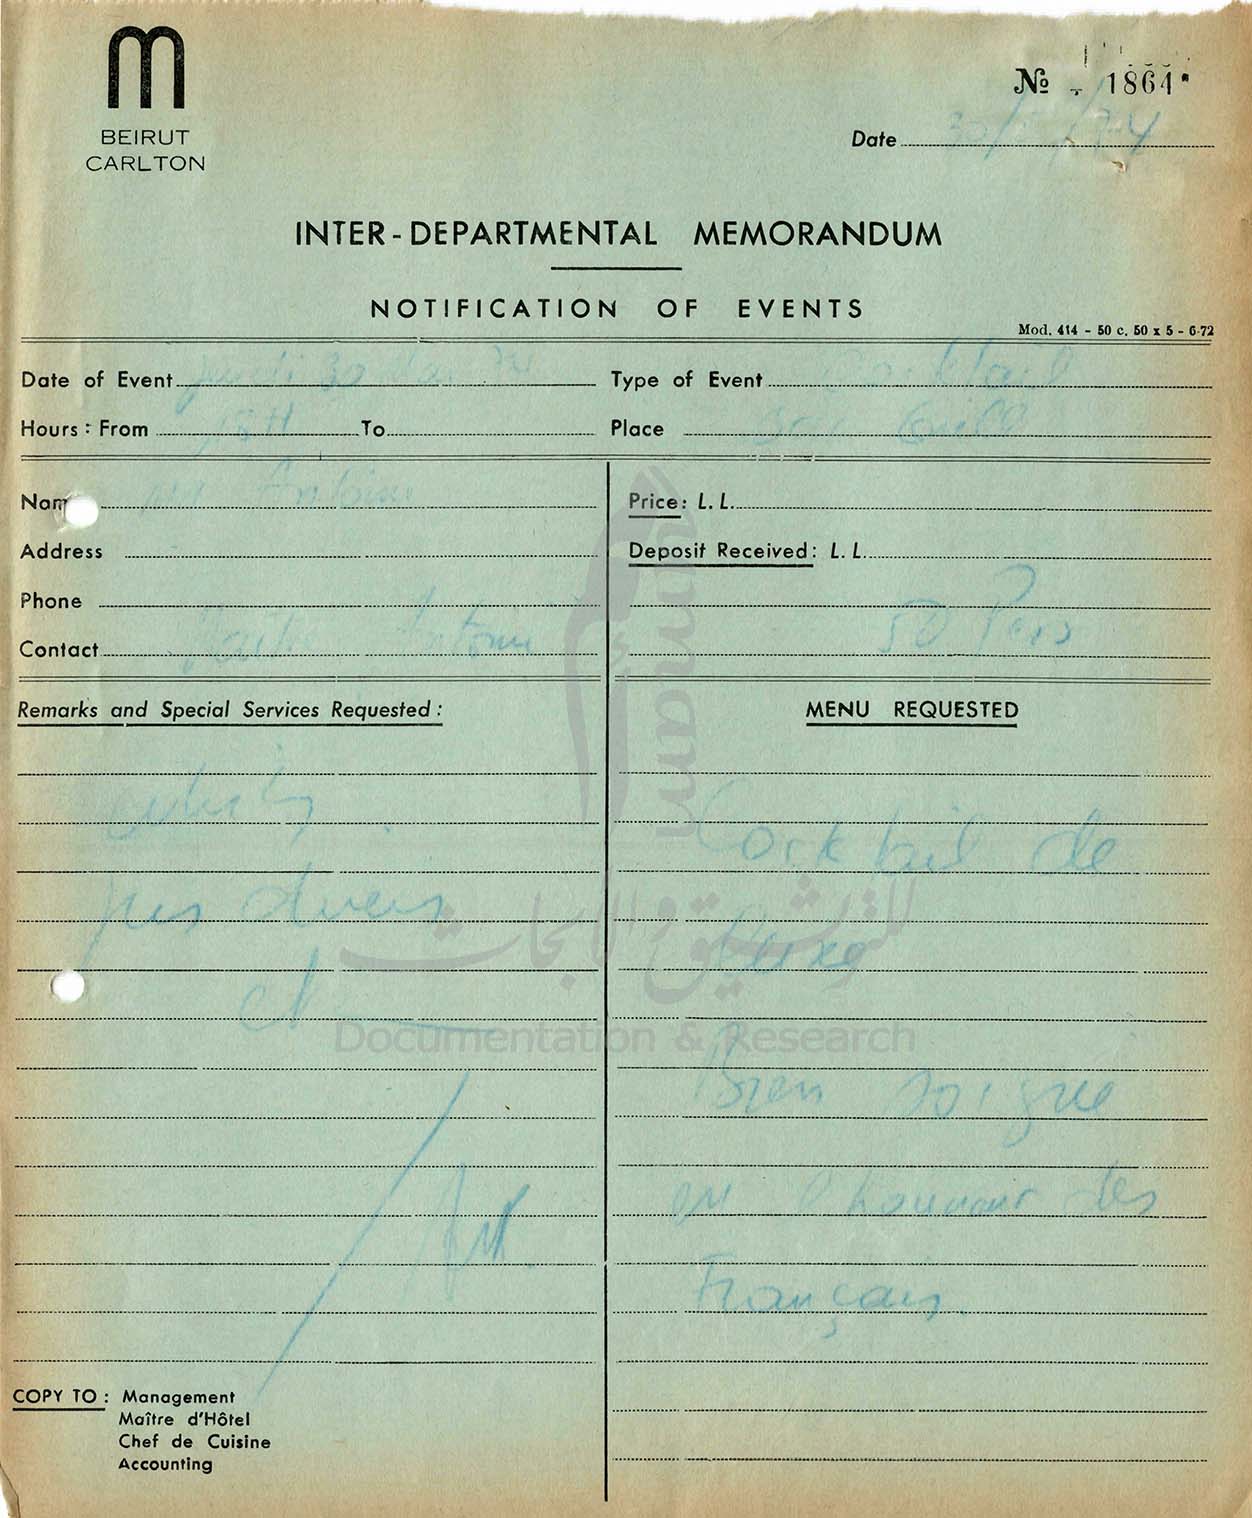 m
BEIRUT
CARLTON
№ 1864
Date 30/5/74
INTER-DEPARTMENTAL MEMORANDUM
NOTIFICATION OF EVENTS
Mod. 414 - 50 c. 50 x 5 - 6-72
Date of Event Jeudi 30 Mai 74
Type of Event Cocktail
Hours: From 18H To
Place Grill
Name Mr Antoine
Price: L. L.
Address
Deposit Received: L. L.
Phone
50 Pers
Contact Maitre Antoine
Remarks and Special Services Requested:
whisky
jus divers
et
MENU REQUESTED
Cocktail de
Luxe
Bien soigné
en l'honneur des
Français.
COPY TO: Management
Maître d'Hôtel
Chef de Cuisine
Accounting
umam
للتوثيق والأبحاث
Documentation & Research